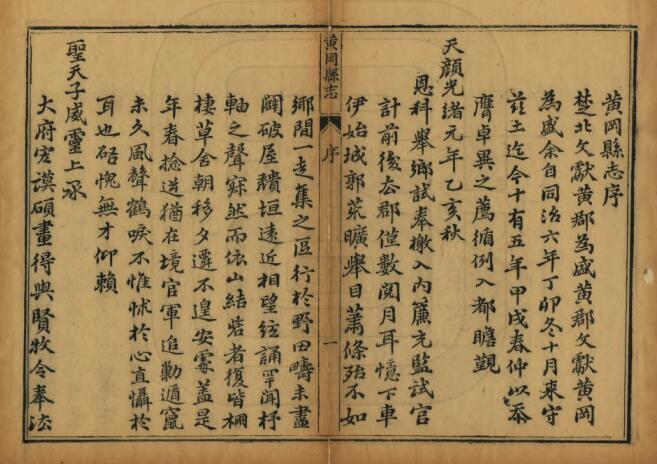 黄岡縣志序
楚北文獻黄郡為盛黄郡文獻黄岡
為盛余自同治六年丁卯冬十月來守
茲土迄今十有五年甲戌春仲以忝
膺卓異之薦循例入都瞻覲
天顏光緒元年乙亥秋
恩科舉鄉試奉檄入內簾充監試官
計前後去郡僅數閱月耳憶下車
伊始城郭荒曠舉目蕭條殆不如
黄岡縣志
序
一
鄉間一走集之區行於野田疇未盡
闢破屋穨垣遠近相望絃誦罕聞杼
軸之聲寂然而依山結砦者復皆棚
棲草舍朝移夕遷不遑安處蓋是
年春捻逆猶在境官軍追勦遁竄
未久風聲鶴唳不惟怵於心直懾於
耳也碚愧無才仰賴
聖天子威靈上承
大府宏謨碩畫得與賢牧令奉法